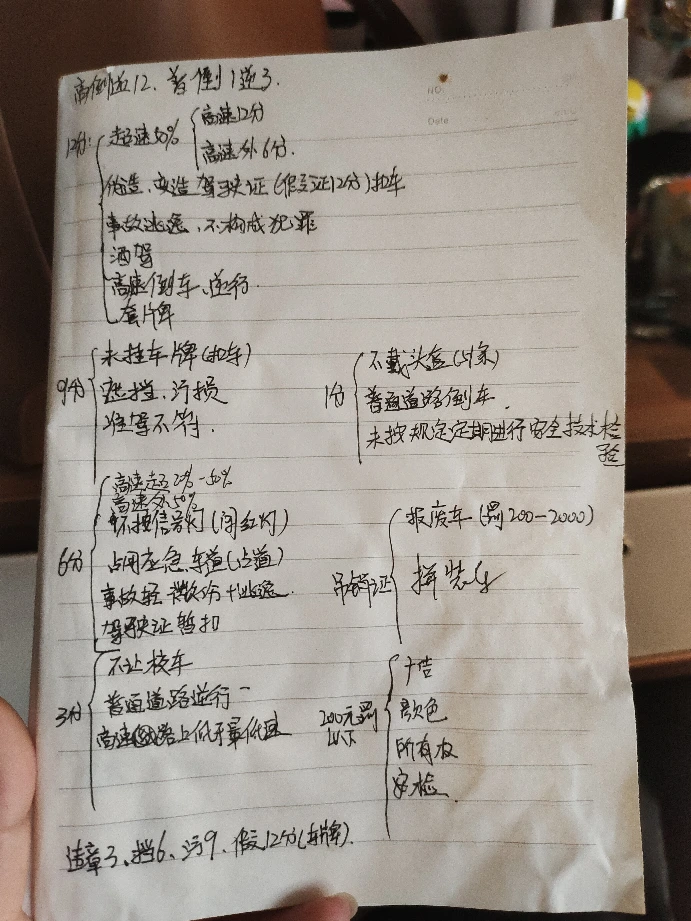 高倒逆12、普倒1逆3.
NO.
Date
12分:
超速50%
高速12分
高速外6分.
伪造、变造驾驶证(假证12分)扣车
事故逃逸、不构成犯罪
酒驾
高速倒车、逆行.
套牌
9分
未挂车牌(扣车)
遮挡、污损
准驾不符.
1分
不戴头盔
普通道路倒车.
未按规定定期进行安全技术检
验
6分
高速超20%-50%
高速外50%
不按信号灯(闯红灯)
占用应急车道
事故轻微伤+逃逸.
驾驶证暂扣
吊销证
报废车(罚200-2000)
拼装车
3分
不让校车
普通道路逆行
高速路上低于最低速
200元罚
以下
颜色
所有权
安检.
违章3、挡6、污9、假12分(车牌).